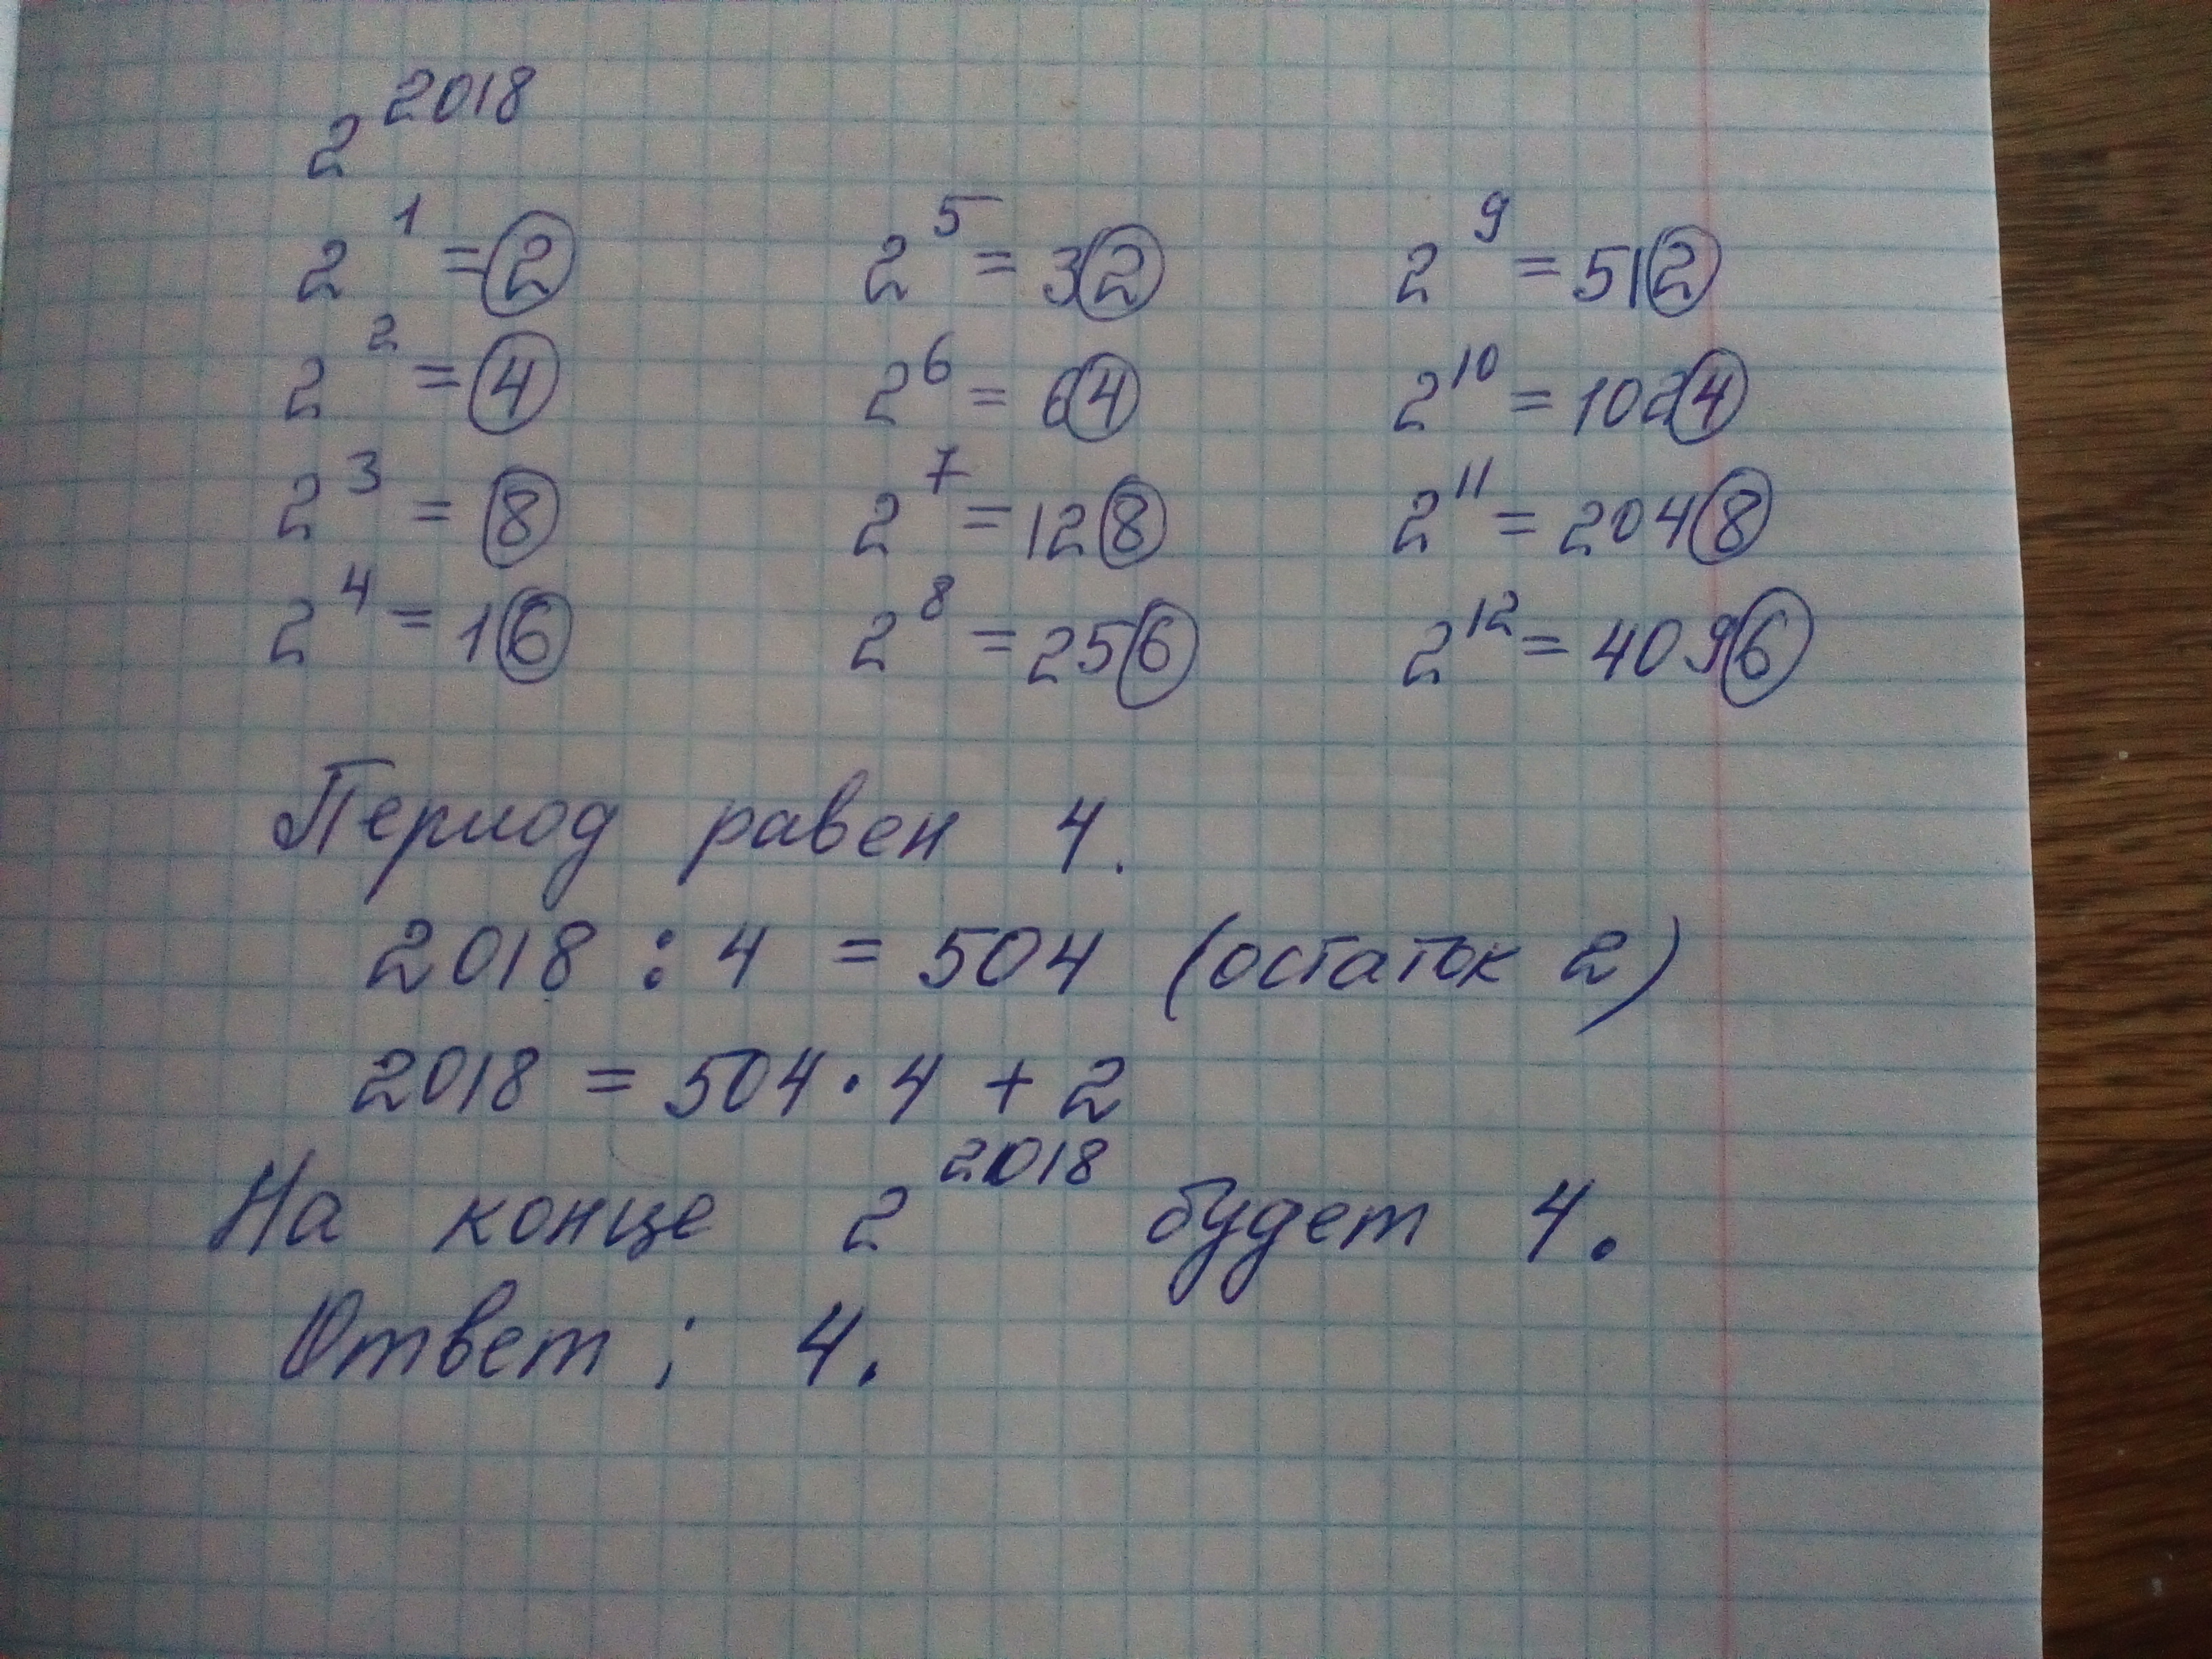 2^2018
2^1 = 2 2^5 = 32 2^9 = 512
2^2 = 4 2^6 = 64 2^10 = 1024
2^3 = 8 2^7 = 128 2^11 = 2048
2^4 = 16 2^8 = 256 2^12 = 4096
Период равен 4.
2018 : 4 = 504 (остаток 2)
2018 = 504 · 4 + 2
На конце 2^2018 будет 4.
Ответ: 4.